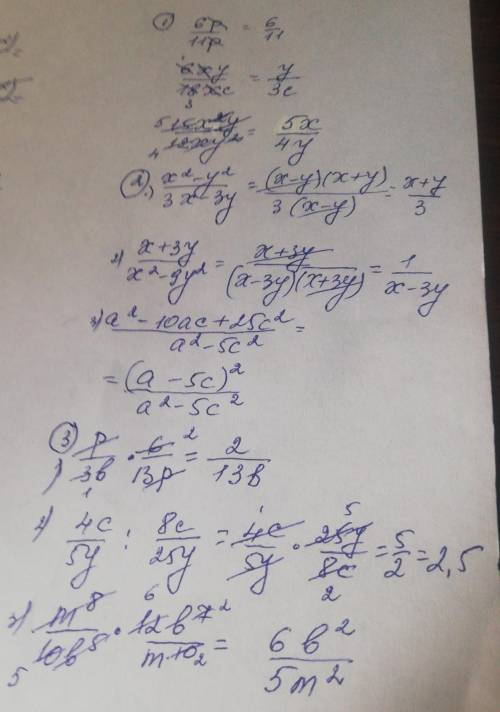 ① 6p/11p = 6/11
6xy/18xc = y/3c
15x²y/12xy² = 5x/4y
② 1) x²-y²/3x-3y = (x-y)(x+y)/3(x-y) = x+y/3
2) x+3y/x²-9y² = x+3y/(x-3y)(x+3y) = 1/x-3y
3) a²-10ac+25c²/a²-5c² =
= (a-5c)²/a²-5c²
③ 1) p/3b · 6/13p = 2/13b
2) 4c/5y : 8c/25y = 4c/5y · 25y/8c = 5/2 = 2,5
3) m⁸/10b⁵ · 12b⁷/m¹⁰ = 6b²/5m²